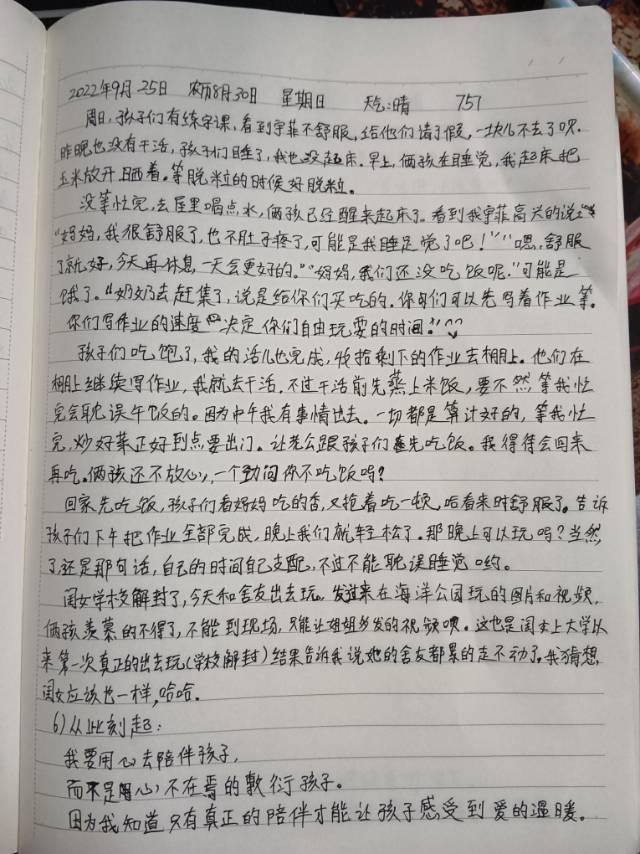 2022年9月25日 农历8月30日 星期日 天气:晴 757
周日,孩子们有练字课,看到宇菲不舒服,给他们请了假,一块儿不去了呗.
昨晚也没有干活,孩子们睡了,我也没起床.早上,俩孩在睡觉,我起床把
玉米放开晒着.等脱粒的时候好脱粒.
没等忙完,去屋里喝点水,俩孩已经醒来起床了.看到我宇菲高兴的说:
“妈妈,我很舒服了,也不肚子疼了,可能是我睡足觉了吧!”“嗯,舒服
了就好,今天再休息,一天会更好的.”“妈妈,我们还没吃饭呢.”可能是
饿了.“奶奶去赶集了,说是给你们买吃的.你们可以先写着作业等.
你们写作业的速度 决定你们自由玩耍的时间.”
孩子们吃饱了,我的活儿也完成,收拾剩下的作业去棚上.他们在
棚上继续写作业,我就去干活,不过干活前先蒸上米饭,要不然等我忙
完会耽误午饭的.因为中午我有事情出去.一切都是算计好的,等我忙
完,炒好菜正好到点要出门.让老公跟孩子们先吃饭.我得得会回来
再吃.俩孩还不放心,一个劲问你不吃饭吗?
回家先吃饭,孩子们看妈妈吃的香,又抢着吃一顿,哈看来时舒服了.告诉
孩子们下午把作业全部完成,晚上我们就轻松了.那晚上可以玩吗?当然
了,还是那句话,自己的时间自己支配,不过不能耽误睡觉哟.
闺女学校解封了,今天和舍友出去玩.发过来在海洋公园玩的图片和视频,
俩孩羡慕的不得了,不能到现场,只能让姐姐多发的视频呗.这也是闺女上大学以
来第一次真正的出去玩(学校解封)结果告诉我说她的舍友都累的走不动了.我猜想,
闺女应该也一样,哈哈.
6)从此刻起:
我要用心去陪伴孩子,
而不是用心不在焉的敷衍孩子.
因为我知道只有真正的陪伴才能让孩子感受到爱的温暖.